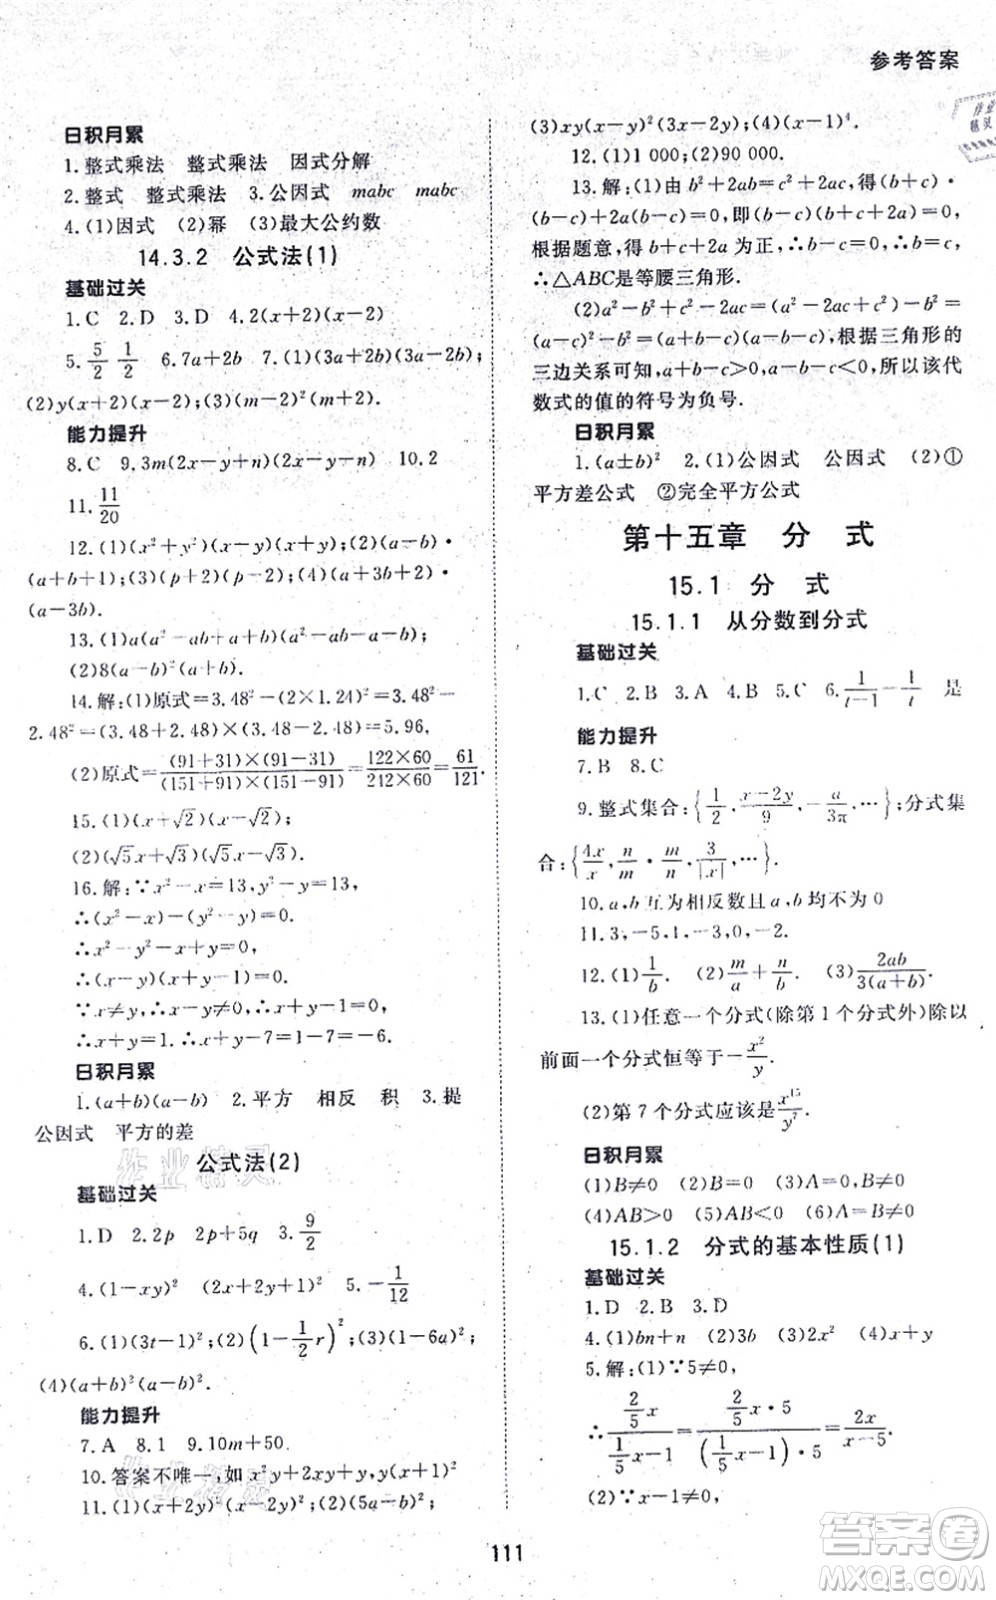 参考答案
日积月累
1.整式乘法 整式乘法 因式分解
2.整式 整式乘法 3.公因式 mabc mabc
4.(1)因式 (2)幂 (3)最大公约数
14.3.2 公式法(1)
基础过关
1.C 2.D 3.D 4.2(x+2)(x-2)
5.5/2 1/2 6.7a+2b 7.(1)(3a+2b)(3a-2b);
(2)y(x+2)(x-2);(3)(m-2)²(m+2).
能力提升
8.C 9.3m(2x-y+n)(2x-y-n) 10.2
11.11/20
12.(1)(x²+y²)(x-y)(x+y);(2)(a-b)·
(a+b+1);(3)(p+2)(p-2);(4)(a+3b+2)·
(a-3b).
13.(1)a(a²-ab+a+b)(a²-ab-a-b);
(2)8(a-b)²(a+b).
14.解:(1)原式=3.48²-(2×1.24)²=3.48²-
2.48²=(3.48+2.48)×(3.48-2.48)=5.96,
(2)原式=(91+31)×(91-31)/(151+91)×(151-91)=122×60/212×60=61/121.
15.(1)(x+√2)(x-√2);
(2)(√5x+√3)(√5x-√3).
16.解:∵x²-x=13,y²-y=13,
∴(x²-x)-(y²-y)=0.
∴x²-y²-x+y=0,
∴(x-y)(x+y-1)=0.
∵x≠y,∴x-y≠0,∴x+y=1,
∴x+y-7=1-7=-6.
日积月累
1.(a+b)(a-b) 2.平方 相反 积 3.提
公因式 平方的差
公式法(2)
基础过关
1.D 2.2p 2p+5q 3.9/2
4.(1)(x-y)² (2x+y)² 5.-1/12
6.(1)(3t-1)²;(2)(1-1/2r)²;(3)(1-6a)²;
(4)(a+b)²(a-b)².
能力提升
7.A 8.1 9.10m+50.
10.答案不唯一,如x²y+2xy+y=y(x+1)²
11.(1)(x+2y)²(x-2y)²;(2)(5a-b)²;
(3)xy(x-y)²(3x-2y);(4)(x-1)⁴.
12.(1)1 000;(2)90 000.
13.解:(1)由b²+2ab=c²+2ac,得(b+c)·
(b-c)+2a(b-c)=0,即(b-c)(b+c+2a)=0,
根据题意,得b+c+2a为正,∴b-c=0,∴b=c,
∴△ABC是等腰三角形.
(2)a²-b²+c²-2ac=(a²-2ac+c²)-b²=
(a-c)²-b²=(a-b-c)(a+b-c),根据三角形的
三边关系可知,a+b-c>0,a-b-c<0.所以该代
数式的值的符号为负号.
日积月累
1.(a±b)² 2.(1)公因式 公因式 (2)①
平方差公式 ②完全平方公式
第十五章 分 式
15.1 分 式
15.1.1 从分数到分式
基础过关
1.C 2.B 3.A 4.B 5.x 6.1/(t-1)-1/t 是
能力提升
7.B 8.C
9.整式集合:{1/2,(x-2y)/9,-a/3π,…};分式集
合:{4x/x,n/m·m/n,3/|x|,…}.
10.a,b互为相反数且a,b均不为0
11.3,-5,1,-3,0,-2
12.(1)1/b. (2)m/a+n/b. (3)2ab/3(a+b).
13.(1)任意一个分式(除第1个分式外)除以
前面一个分式恒等于-x²/y.
(2)第7个分式应该是x¹⁵/y⁷.
日积月累
(1)B≠0 (2)B=0 (3)A=0,B≠0
(4)AB>0 (5)AB<0 (6)A=B≠0
15.1.2 分式的基本性质(1)
基础过关
1.D 2.B 3.D
4.(1)bn+n (2)3b (3)2x² (4)x+y
5.解:(1)∵5≠0,
∴(2/5x)/(1/5x-1)=(2/5x·5)/((1/5x-1)·5)=2x/(x-5).
(2)∵x-1≠0,
111
答案圈
MXQE.COM
作业精灵